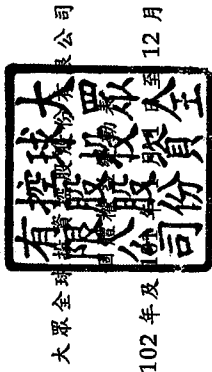 大眾全球投資控股股份有限公司
102 年及 101 年 至 12 月
大眾全
球投資
控股股份
有限公司